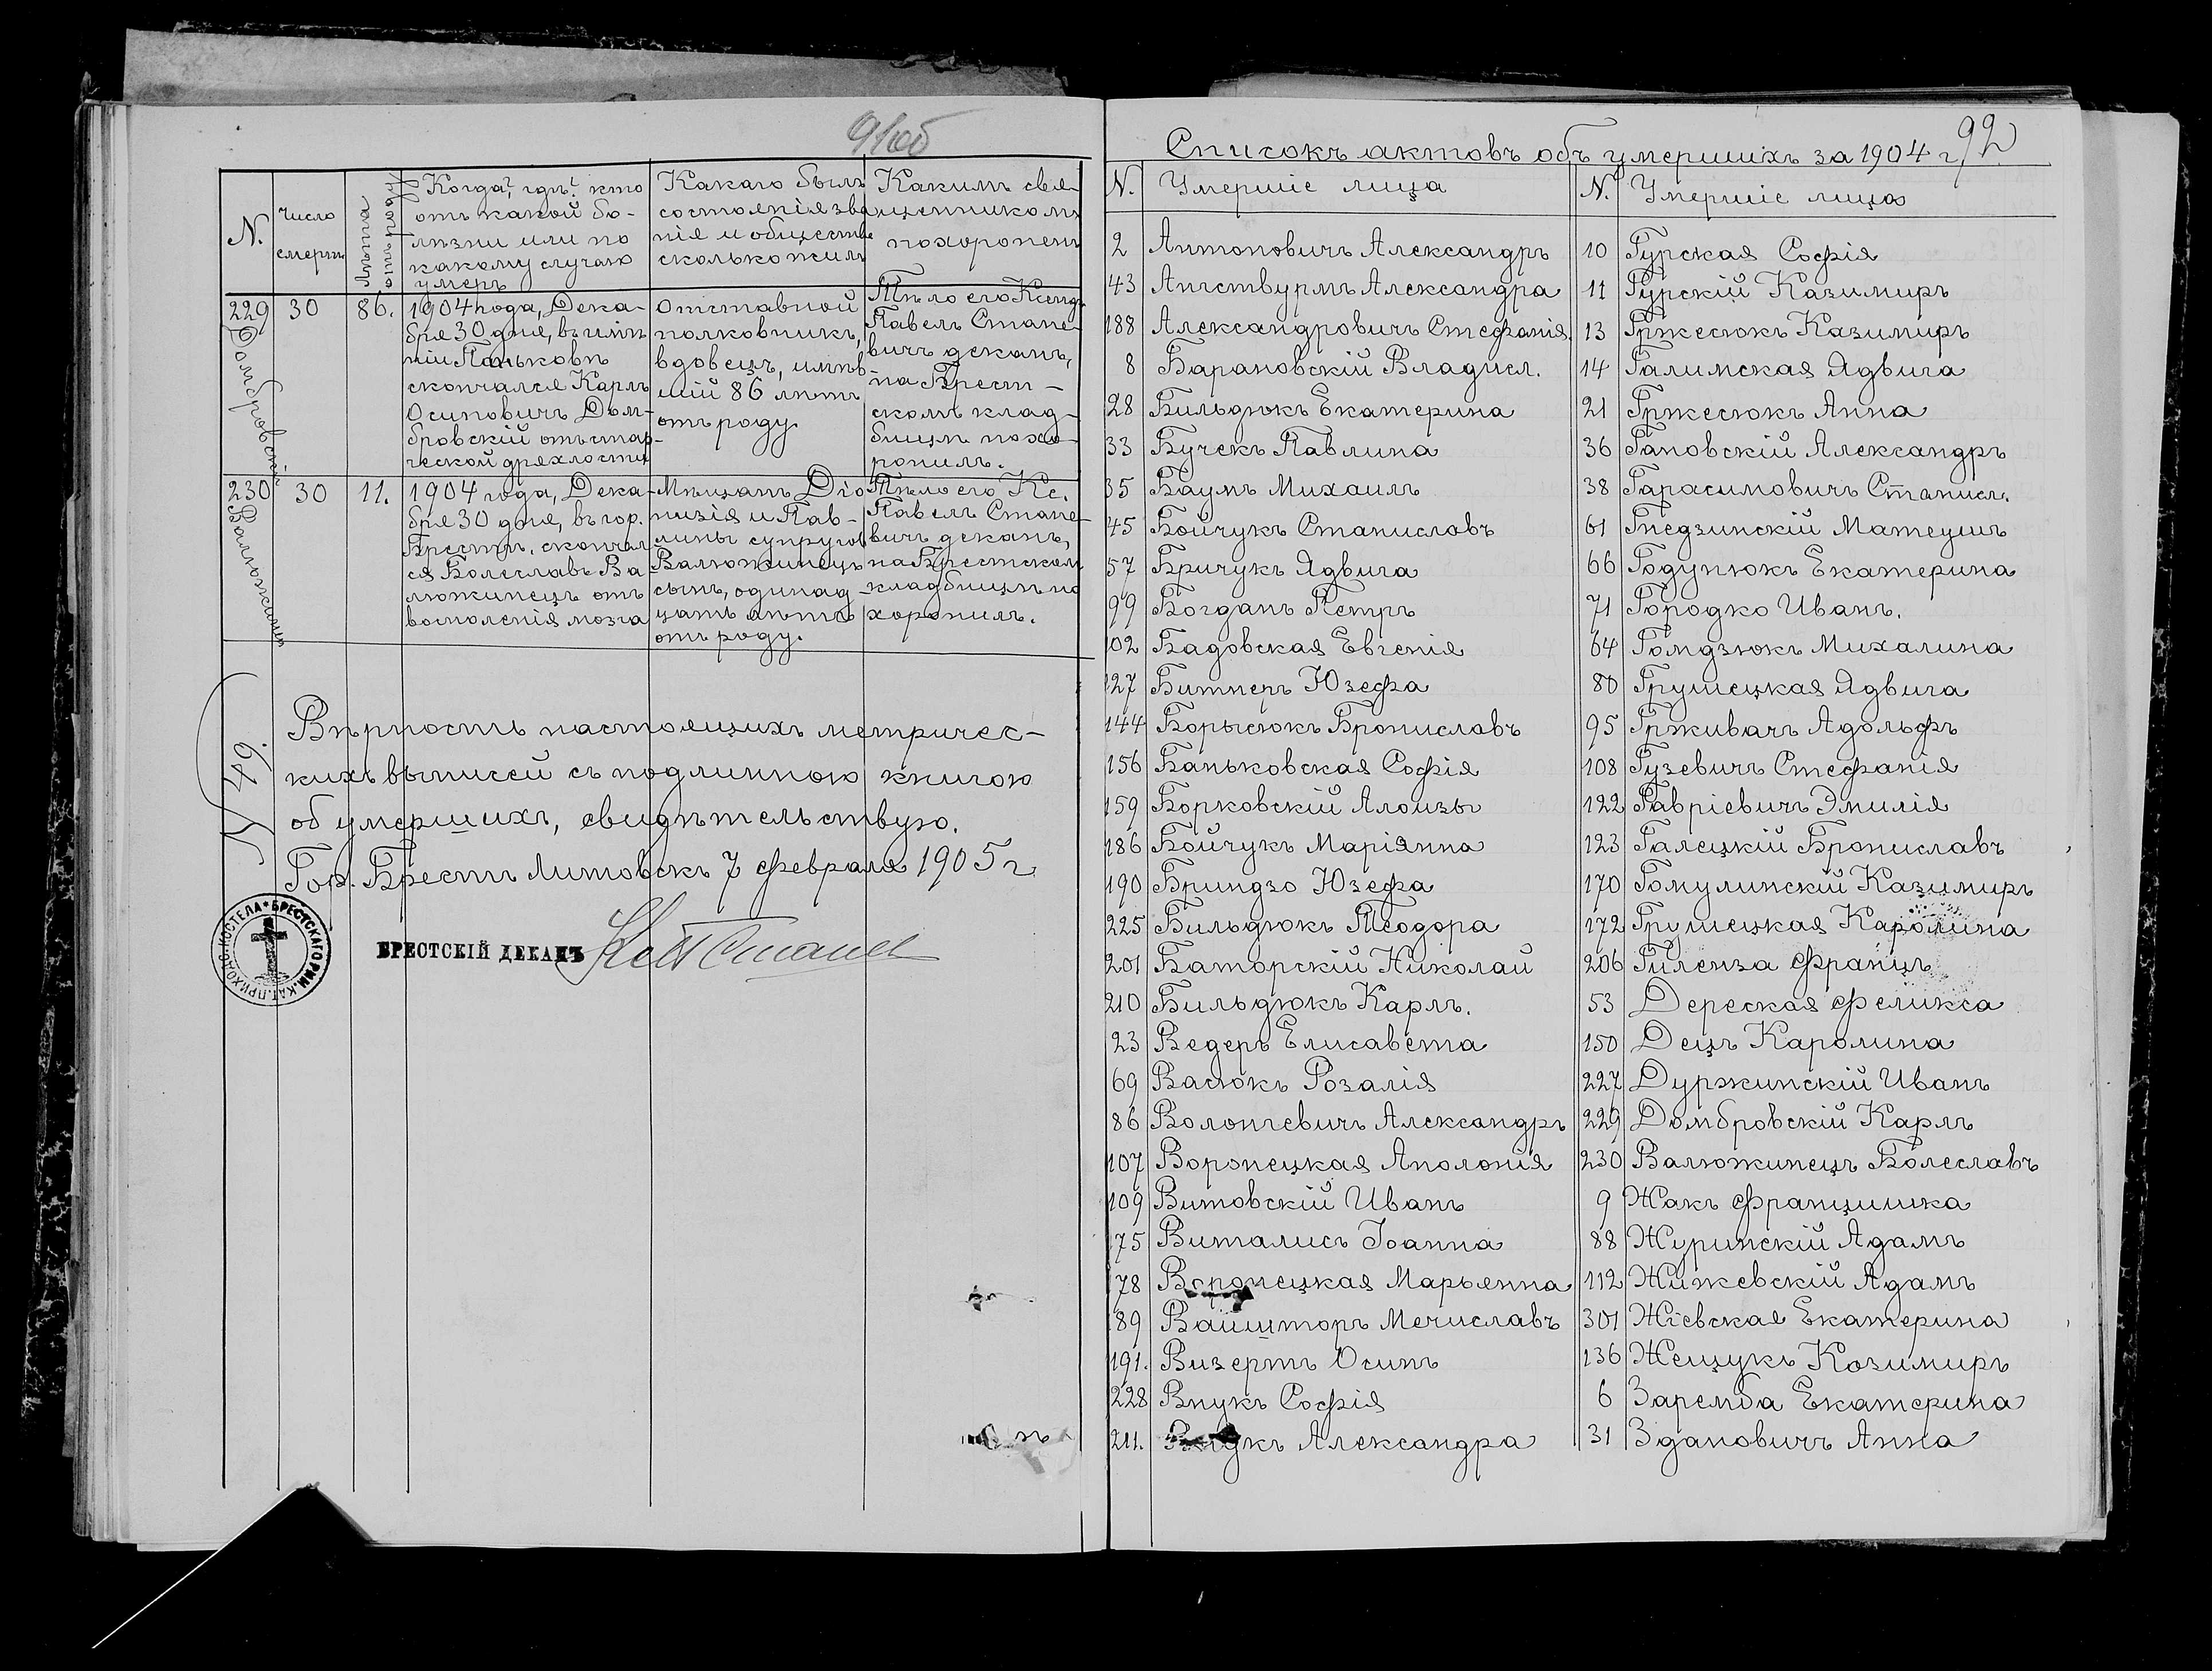 91об
N.
Число
смерти
Лѣта
отъ роду
Когда?, гдѣ?, кто
отъ какой бо-
лѣзни или по
какому случаю
умеръ
Какого былъ
состоянія зва
нія и общества
сколько жилъ
Какимъ свя-
щенникомъ
похороненъ
229
Домбровскій
30
86.
1904 года, Дека-
бря 30 дня, въ имѣ
ніи Паньковъ
скончался Карлъ
Осиповичъ Дом-
бровскій отъ стар-
ческой дряхлости
Отставной
полковникъ,
вдовецъ, имѣв-
шій 86 лѣтъ
отъ роду.
Тѣло его Ксендзъ
Павелъ Стане-
вичъ деканъ,
на Брест-
скомъ клад-
бищѣ похо-
ронилъ.
230
Валюжинецъ
30
11.
1904 года, Дека-
бря 30 дня, въ гор.
Брестѣ. скончал
ся Болеславъ Ва
люжинецъ отъ
восполенія мозга
Мѣщанъ Діо
низія и Пав-
лины супруговъ
Валюжинецъ
сынъ, одинад
цать лѣтъ
отъ роду.
Тѣло его Кс.
Павелъ Стане-
вичъ деканъ,
на Брестскомъ
кладбищѣ по
хоронилъ.
N 49.
Вѣрность настоящихъ метричес-
кихъ выписей съ подлинною книгою
об умершихъ, свидѣтельствую.
Гор. Брестъ Литовскъ 7 февраля 1905 г
БРЕСТСКАГО РИМ. КАТ. ПРИХОД. КОСТЕЛА *
БРЕСТСКІЙ ДЕКАНЪ
92
Списокъ актовъ объ умершихъ за 1904 г.
N. Умершіе лица
2 Антоновичъ Александръ
43 Ангствурмъ Александра
188 Александровичъ Стефанія.
8 Барановскій Владисл.
28 Бильдюкъ Екатерина
33 Бучекъ Павлина
35 Баумъ Михаилъ
45 Бойчукъ Станиславъ
57 Бричукъ Ядвига
99 Богданъ Петръ
102 Бадовская Евгенія
127 Битнеръ Юзефа
144 Борысюкъ Брониславъ
156 Баньковская Софія
159 Борковскій Алоизы
186 Бойчукъ Маріянна
190 Бриндзо Юзефа
225 Бильдюкъ Теодора
201 Баторскій Николай
210 Бильдюкъ Карлъ.
23 Ведеръ Елисавета
69 Васюкъ Розалія
86 Волонгевичъ Александръ
107 Воронецкая Аполонія
109 Витовскій Иванъ
175 Виталисъ Іоанна
178 Воронецкая Марьянна
189 Вайшторъ Мечиславъ
191. Визертъ Осипъ
228 Внукъ Софія
211. Александра
N. Умершіе лица
10 Гурская Софія
11 Гурскій Казимиръ
13 Гржесюкъ Казимиръ
14 Галимская Ядвига
21 Гржесюкъ Анна
36 Гановскій Александръ
38 Гарасимовичъ Станисл.
61 Гнедзинскій Матеушъ
66 Годунюкъ Екатерина
71 Городко Иванъ.
64 Гомдзюкъ Михалина
80 Грушецкая Ядвига
95 Грживачъ Адольфъ
108 Гузевичъ Стефанія
122 Гавріевичъ Эмилія
123 Галецкій Брониславъ
170 Гомулинскій Казимиръ
172 Грушецкая Каролина
206 Гиленза Францъ
53 Дереская Феликса
150 Децъ Каролина
227 Дуржинскій Иванъ
229 Домбровскій Карлъ
230 Валюжинецъ Болеславъ
9 Жакъ Францишка
88 Журинскій Адамъ
112 Жижевскій Адамъ
301 Жіевская Екатерина
136 Жещукъ Козимиръ
6 Заремба Екатерина
31 Здановичъ Анна